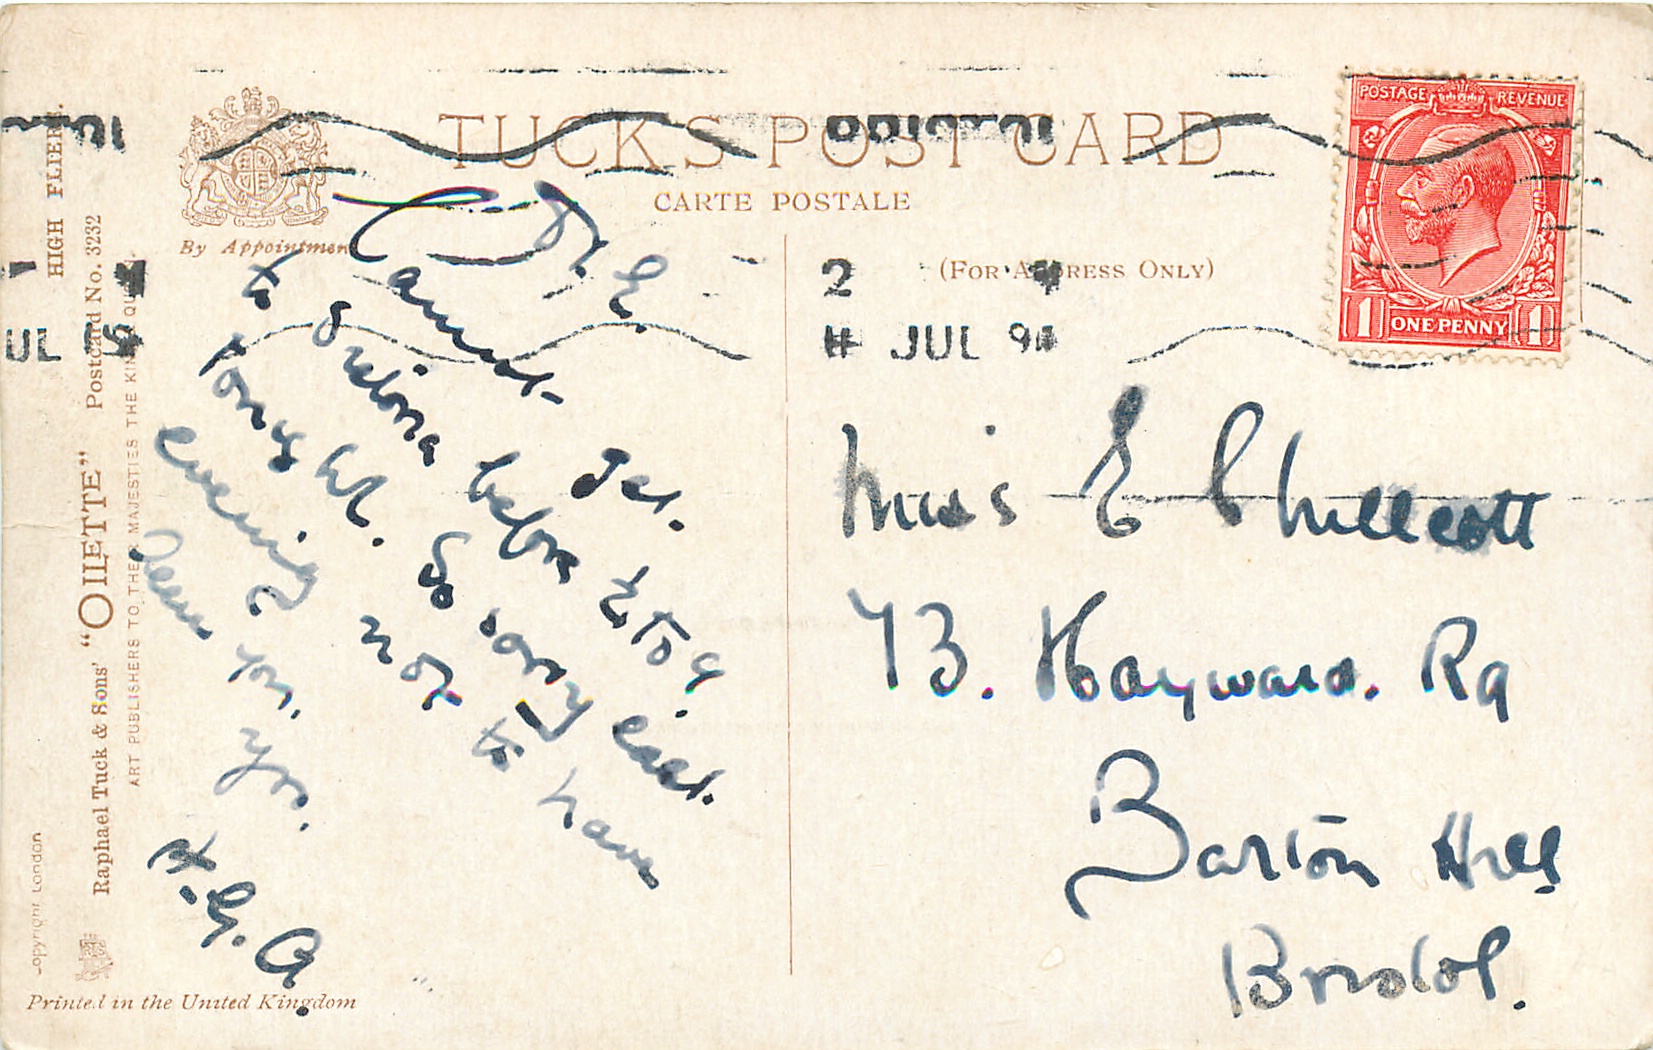 TUCK'S POST CARD
CARTE POSTALE
By Appointment
(FOR ADDRESS ONLY)
POSTAGE REVENUE
1 ONE PENNY 1
BRISTOL
2
JUL
UL
HIGH FLIERS.
Raphael Tuck & Sons' "OILETTE" Postcard No. 3232
ART PUBLISHERS TO THEIR MAJESTIES THE KING
Copyright London
Printed in the United Kingdom
Dr E.
Cannot get
to Gretona before to 9
tonight. So sorry East.
evening not to have
seen you,
yrs.
H.G.A.
Miss E Chillcott
73. Hayward. Rd
Barton Hill
Bristol.